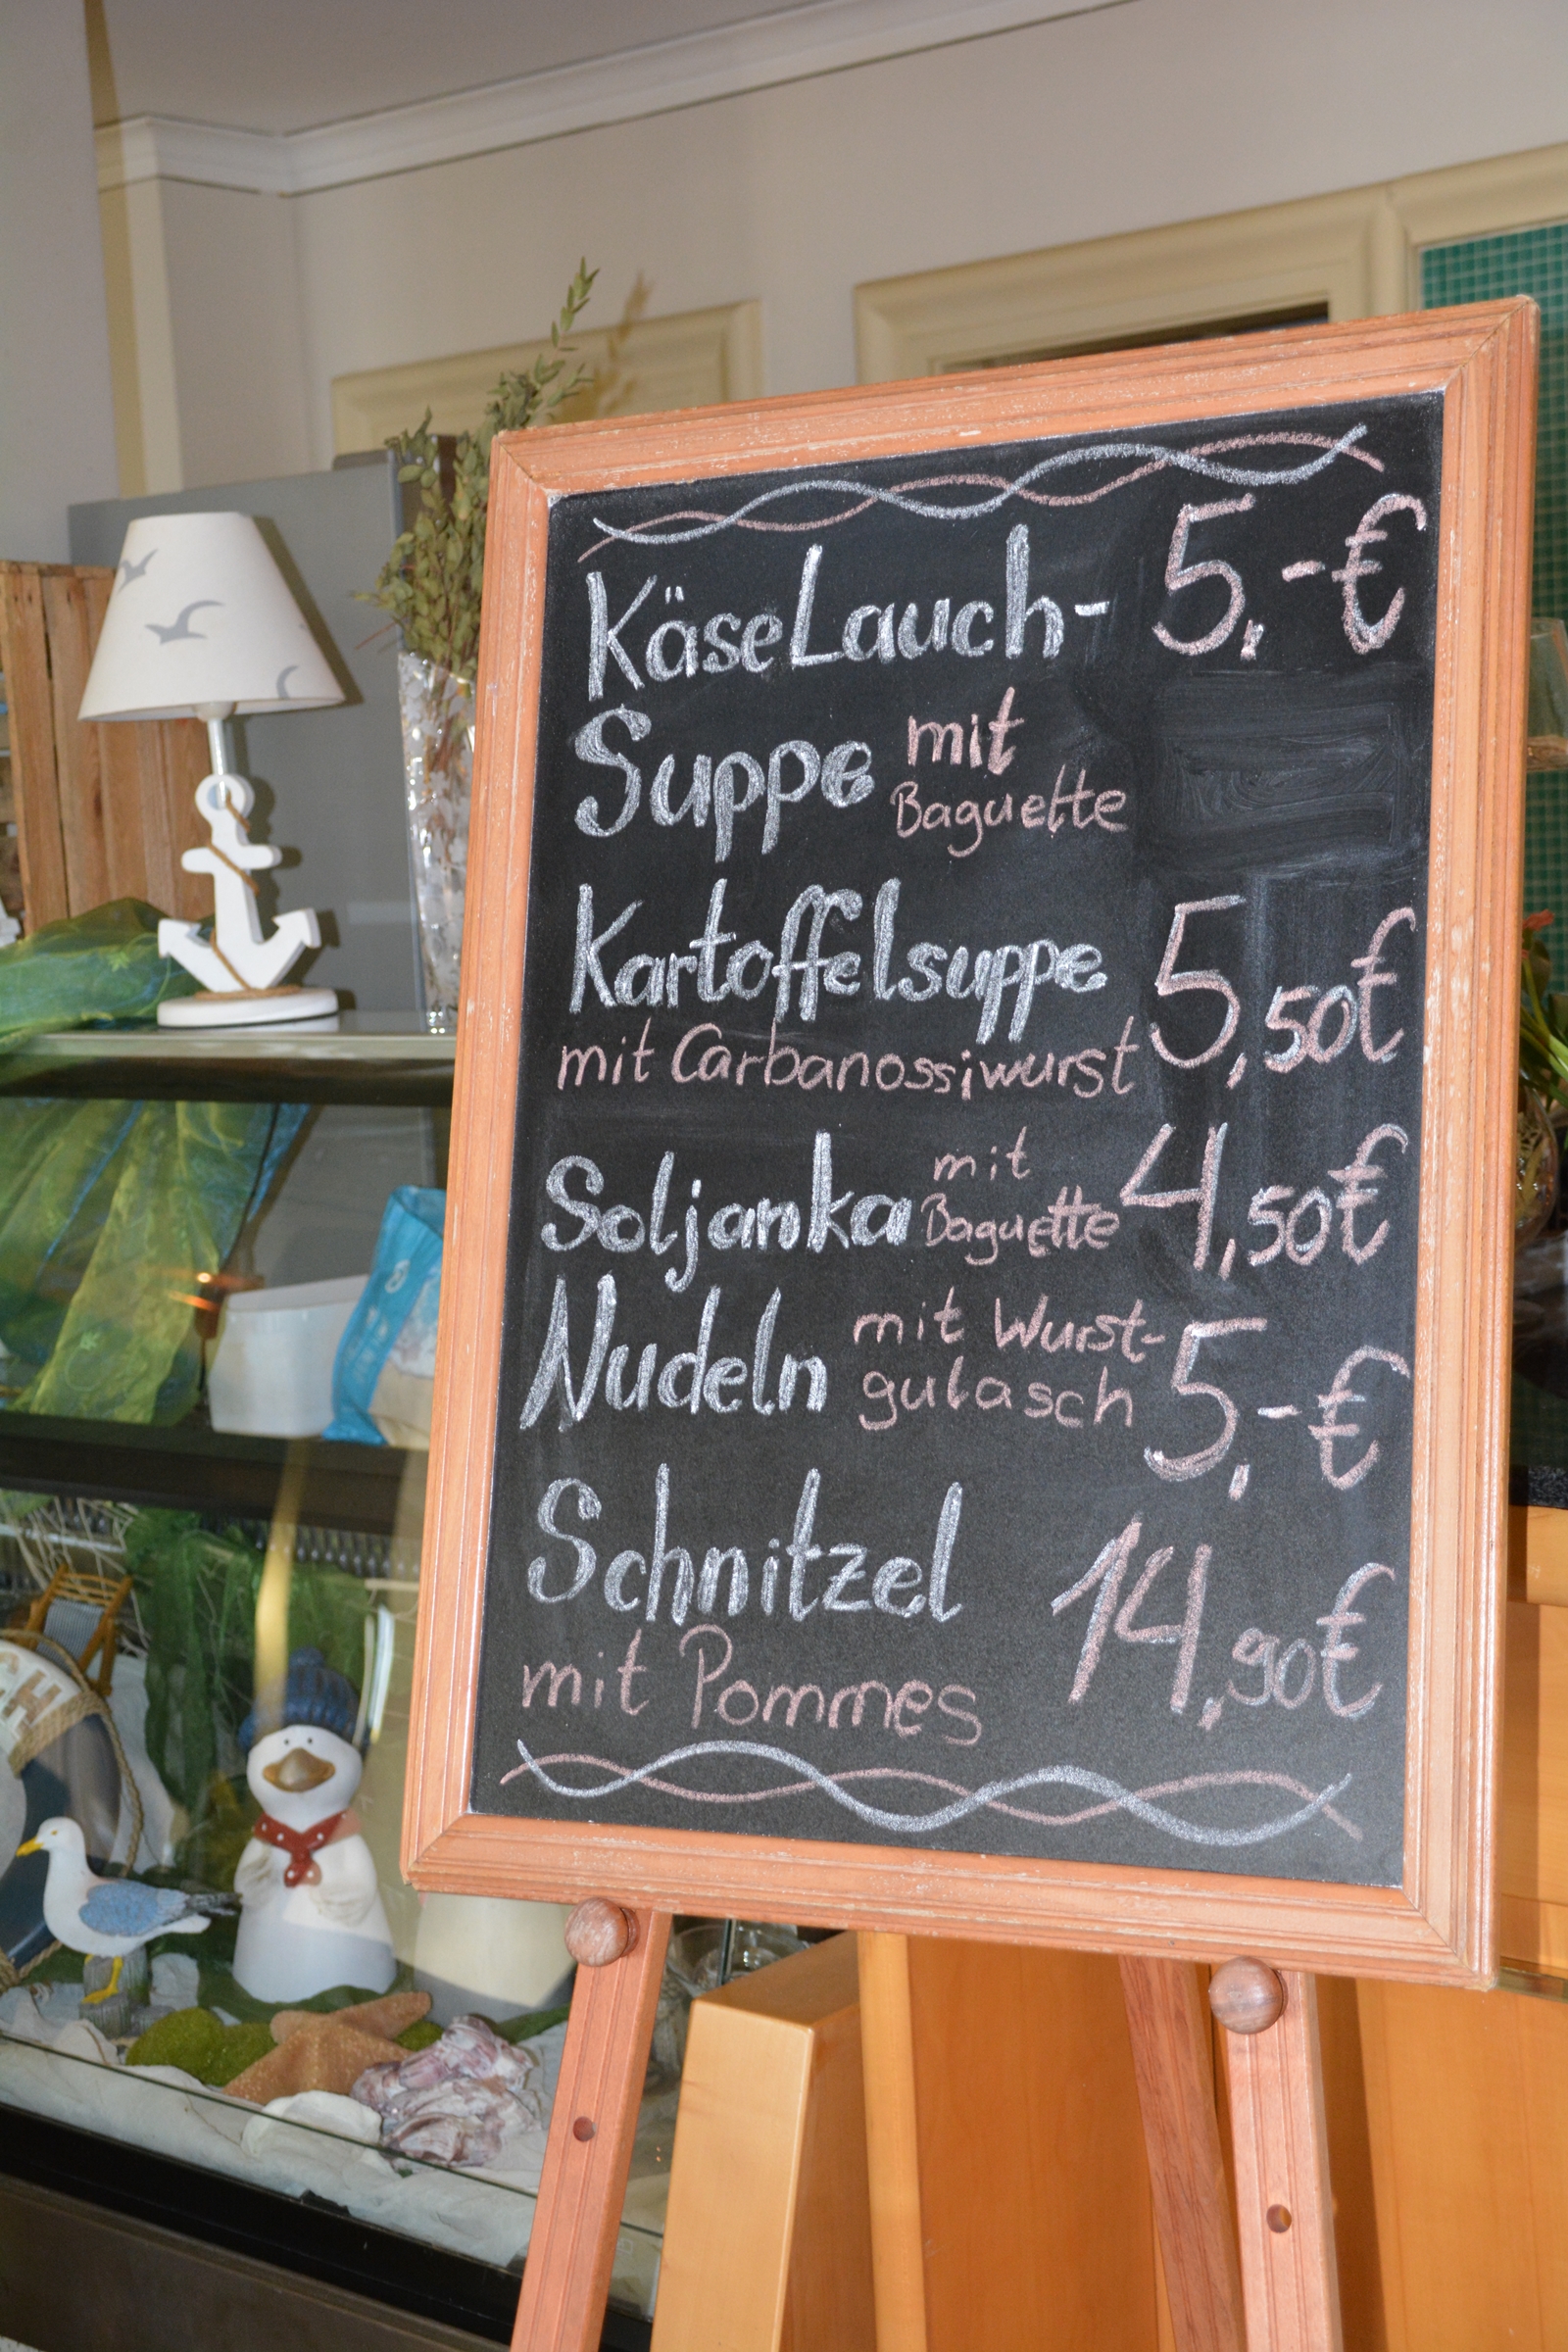 KäseLauch- 5,-€
Suppe mit
Baguette
Kartoffelsuppe 5,50€
mit Carbanossiwurst
Soljanka mit Baguette 4,50€
Nudeln mit Wurst-
gulasch 5,-€
Schnitzel 14,90€
mit Pommes